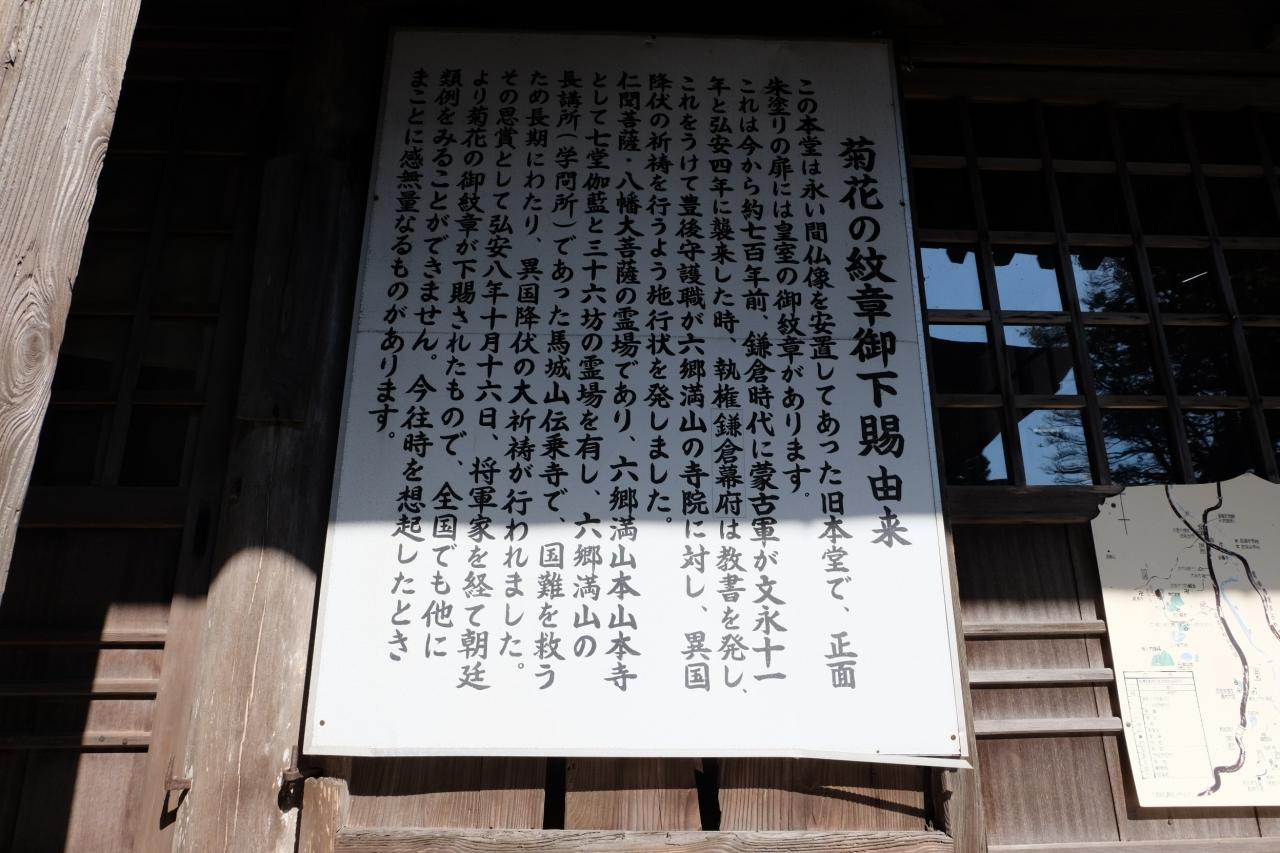 菊花の紋章御下賜由来
この本堂は永い間仏像を安置してあった旧本堂で、正面
朱塗りの扉には皇室の御紋章があります。
これは今から約七百年前、鎌倉時代に蒙古軍が文永十一
年と弘安四年に襲来した時、執権鎌倉幕府は教書を発し、
これをうけて豊後守護職が六郷満山の寺院に対し、異国
降伏の祈祷を行うよう施行状を発しました。
仁聞菩薩・八幡大菩薩の霊場であり、六郷満山本山本寺
として七堂伽藍と三十六坊の霊場を有し、六郷満山の
長講所(学問所)であった馬城山伝乗寺で、国難を救う
ため長期にわたり、異国降伏の大祈祷が行われました。
その恩賞として弘安八年十月十六日、将軍家を経て朝廷
より菊花の御紋章が下賜されたもので、全国でも他に
類例をみることができません。今往時を想起したとき
まことに感無量なるものがあります。